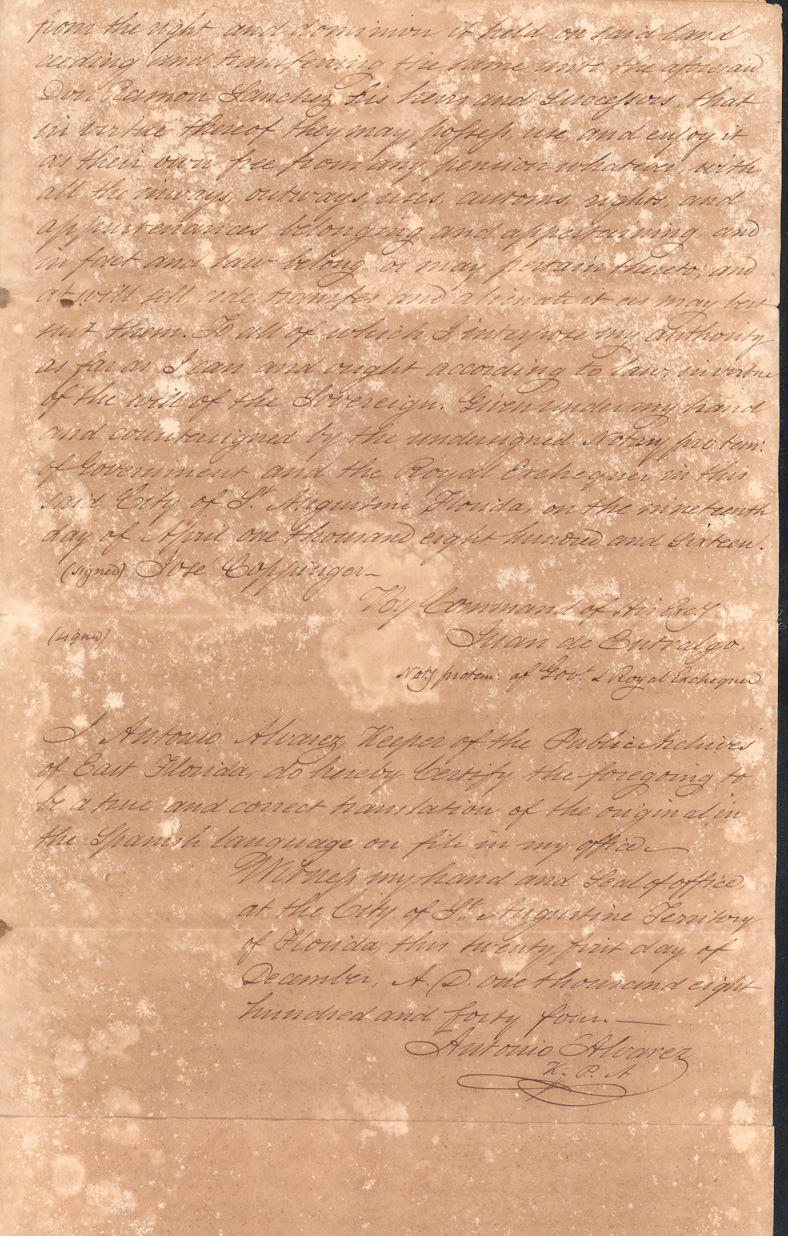 from the right and dominion it held on said land
ceding and transferring the same unto the aforesaid
Don Ramon Sanchez his heirs and Successors, that
in virtue thereof they may possess, use, and enjoy it
as their own free from any pension whatever, with
all the inways, outways, uses, customs, rights, and
appurtenances belonging and appertaining, and
in fact and law belong or may pertain thereto, and
at will sell, cede, transfer and alienate it as may best
suit them. To all of which I interpose my authority
as far as I can and ought according to law, in virtue
of the will of the Sovereign. Given under my hand
and countersigned by the undersigned Notary pro tem:
of Government and the Royal Exchequer in this
said City of St. Augustine Florida, on the nineteenth
day of April one thousand eight hundred and sixteen.
(signed) Jose Coppinger—
By Command of His Excy
(signed) Juan de Entralgo,
Noty protem: of Govt. & Royal Exchequer
I Antonio Alvarez Keeper of the Public Archives
of East Florida, do hereby Certify the foregoing to
be a true and correct translation of the original in
the Spanish language on file in my office—
Witness my hand and Seal of office
at the City of St. Augustine Territory
of Florida, this twenty first day of
December, A.D. one thousand eight
hundred and forty four.—
Antonio Alvarez
K. P. A